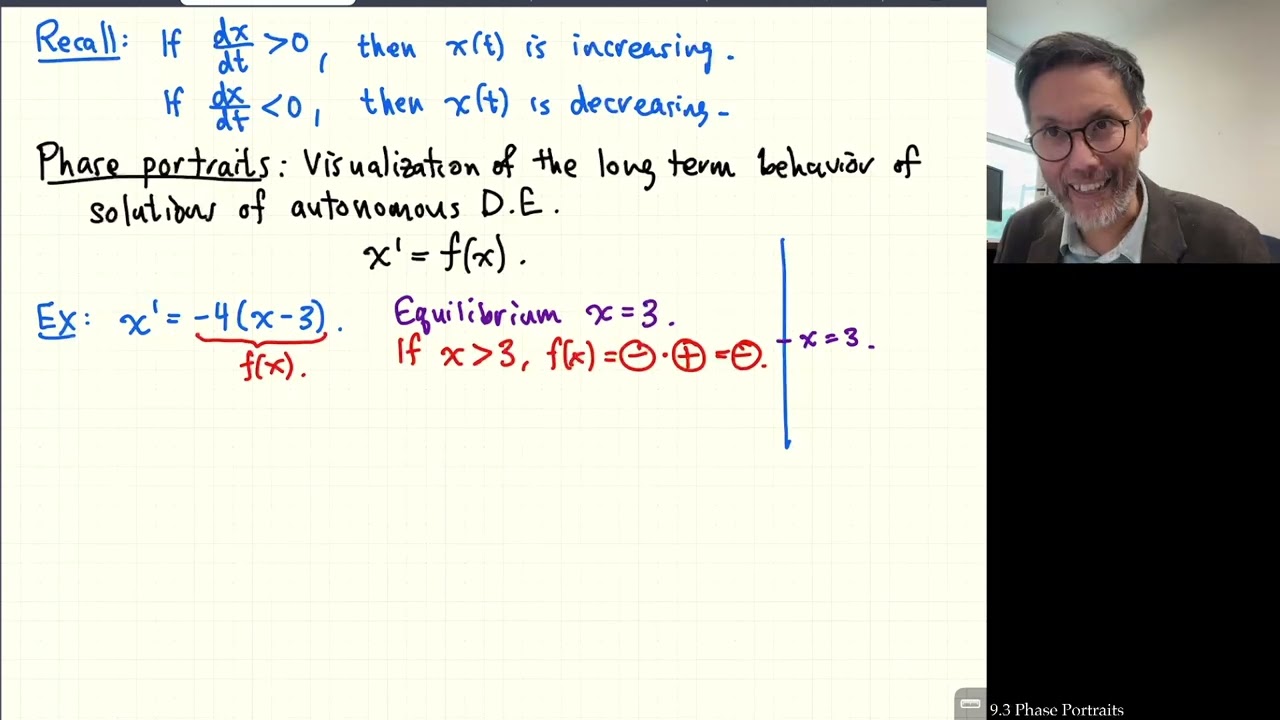 Recall: If dx/dt > 0, then x(t) is increasing.
If dx/dt < 0, then x(t) is decreasing.
Phase portraits: Visualization of the long term behavior of
solutions of autonomous D.E.
x' = f(x).
Ex: x' = -4(x-3).
f(x).
Equilibrium x = 3.
If x > 3, f(x) = ⊖ · ⊕ = ⊖.
x = 3.
9.3 Phase Portraits